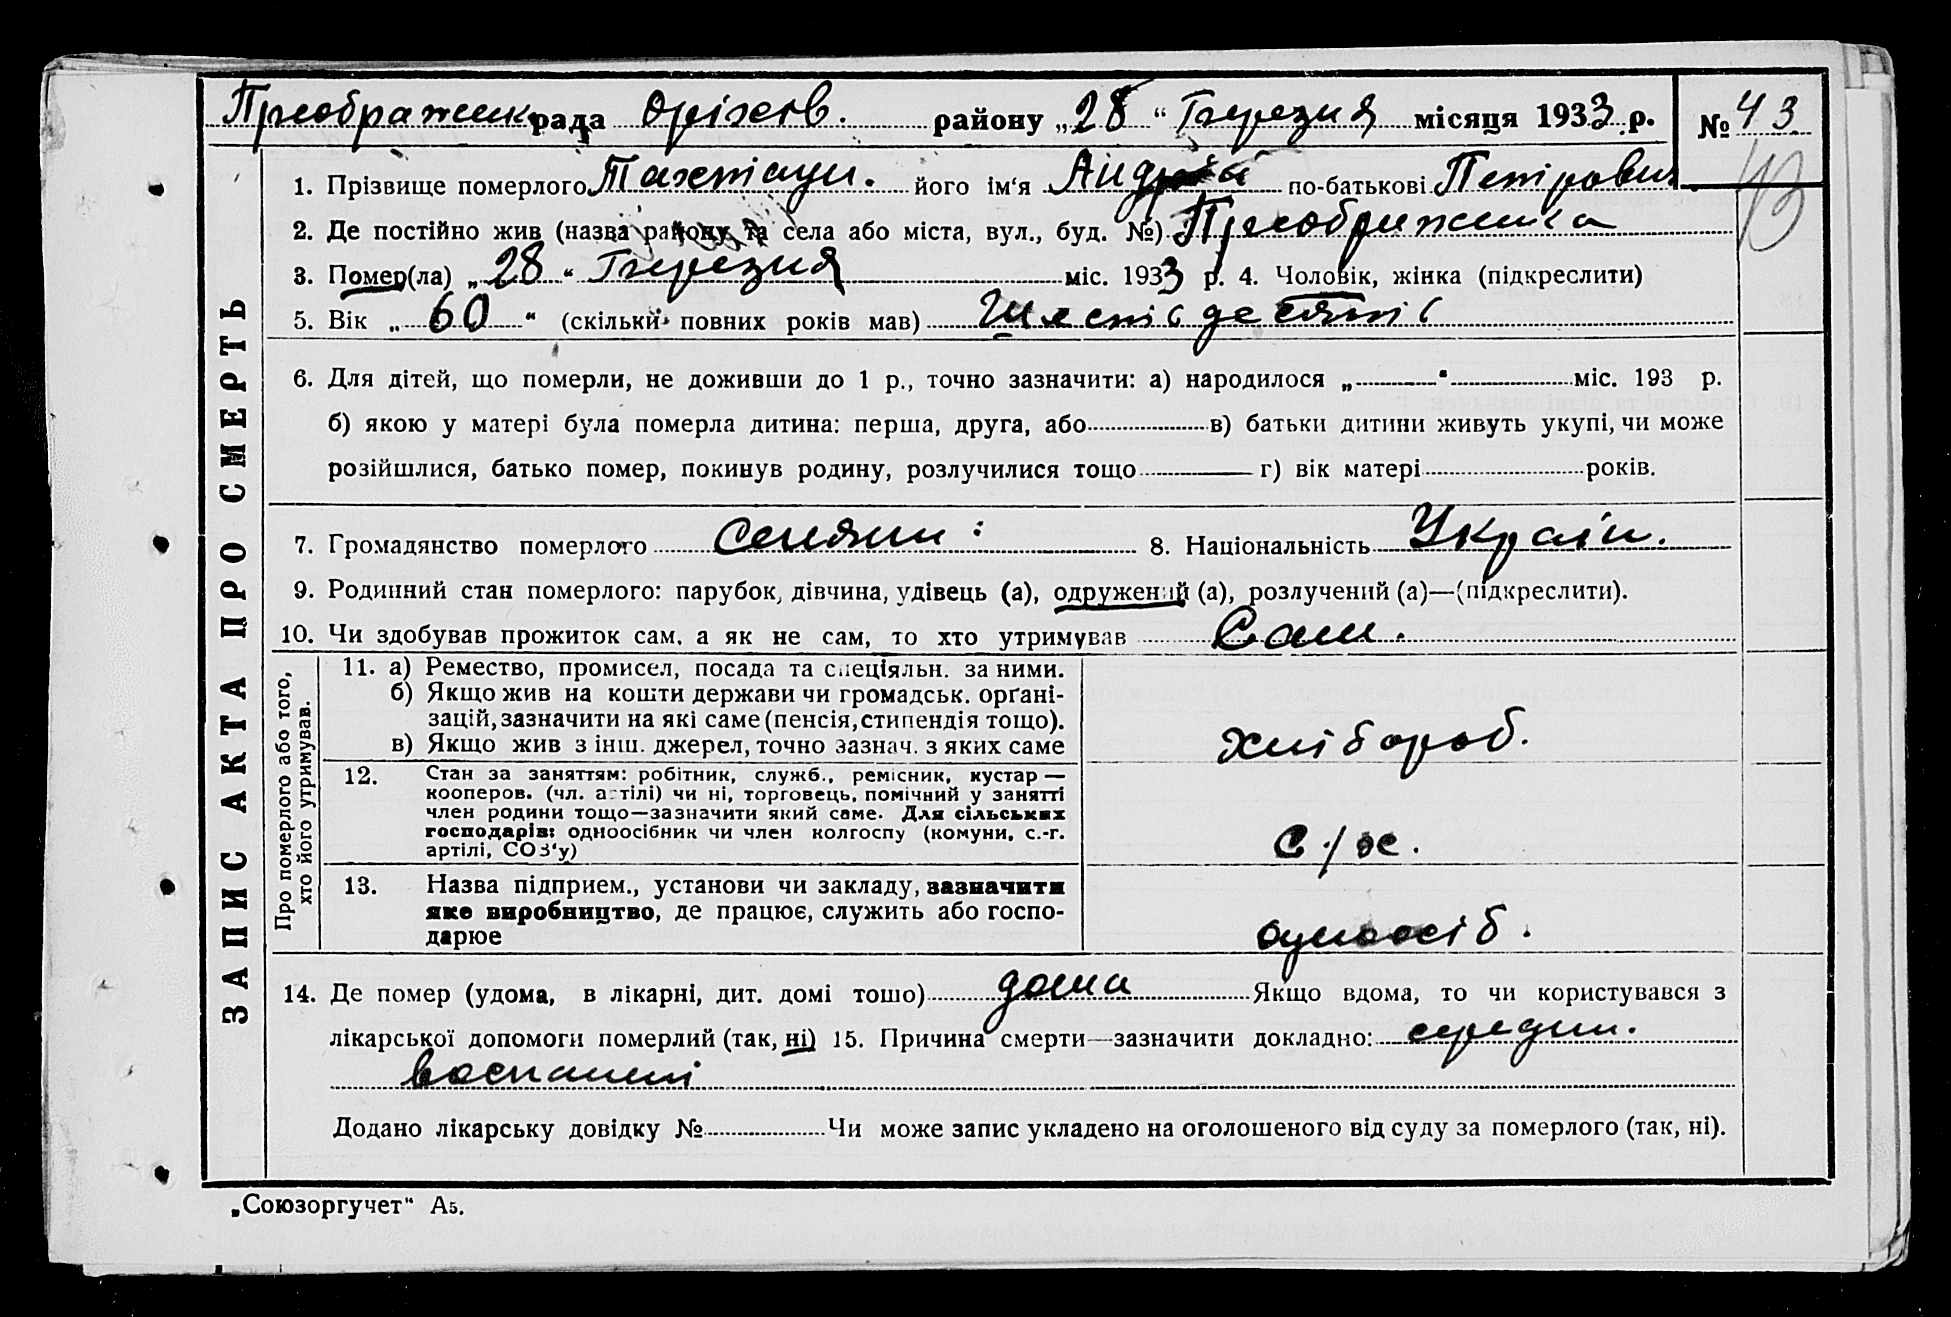 Преображенк рада Оріхов. району „28“ Березня місяця 1933 р. № 43
43
1. Прізвище померлого Тахтаул. його ім'я Андрій по-батькові Петрович
2. Де постійно жив (назва району та села або міста, вул., буд. №) Преображенка
3. Помер(ла) „28“ Березня міс. 1933 р. 4. Чоловік, жінка (підкреслити)
5. Вік „60“ (скільки повних років мав) Шестідесяті
6. Для дітей, що померли, не доживши до 1 р., точно зазначити: а) народилося „ “ міс. 193 р.
б) якою у матері була померла дитина: перша, друга, або в) батьки дитини живуть укупі, чи може
розійшлися, батько помер, покинув родину, розлучилися тощо г) вік матері років.
7. Громадянство померлого селянин: 8. Національність Україн.
9. Родинний стан померлого: парубок, дівчина, удівець (а), одружений (а), розлучений (а)—(підкреслити).
10. Чи здобував прожиток сам, а як не сам, то хто утримував Сам.
ЗАПИС АКТА ПРО СМЕРТЬ
Про померлого або того,
хто його утримував.
11. а) Ремество, промисел, посада та спеціяльн. за ними.
б) Якщо жив на кошти держави чи громадськ. органі-
зацій, зазначити на які саме (пенсія, стипендія тощо).
в) Якщо жив з інш. джерел, точно зазнач. з яких саме
хлібороб.
12. Стан за заняттям: робітник, служб., ремісник, кустар —
кооперов. (чл. артілі) чи ні, торговець, помічний у занятті
член родини тощо—зазначити який саме. Для сільських
господарів: одноосібник чи член колгоспу (комуни, с.-г.
артілі, СОЗ'у)
с/х.
13. Назва підприєм., установи чи закладу, зазначити
яке виробництво, де працює, служить або госпо-
дарює
одноосіб.
14. Де помер (удома, в лікарні, дит. домі тощо) дома Якщо вдома, то чи користувався з
лікарської допомоги померлий (так, ні) 15. Причина смерти—зазначити докладно:
Додано лікарську довідку № Чи може запис укладено на оголошеного від суду за померлого (так, ні).
„Союзоргучет“ А5.